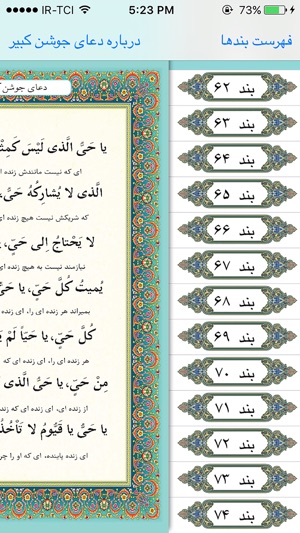 IR-TCI 5:23 PM 73%
درباره دعای جوشن کبیر
فهرست بندها
دعای جوشن
یا حَیَّ الَّذی لَیْسَ کَمِثْ
ای که نیست مانندش زنده ای
الَّذی لا یُشارِکُهُ حَیٌّ،
که شریکش نیست هیچ زنده ای
لا یَحْتاجُ اِلی حَیٍّ،
نیازمند نیست به هیچ زنده ای
یُمیتُ کُلَّ حَیٍّ، یا
بمیراند هر زنده ای را، ای زنده
کُلَّ حَیٍّ، یا حَیّاً لَمْ
هر زنده ای را، ای زنده ای که
مِنْ حَیٍّ، یا حَیَّ الَّذی
از زنده ای، ای زنده ای که زنده
یا حَیُّ یا قَیُّومُ لا تَأْخُذُ
ای زنده پاینده، ای که او را
بند ۶۲
بند ۶۳
بند ۶۴
بند ۶۵
بند ۶۶
بند ۶۷
بند ۶۸
بند ۶۹
بند ۷۰
بند ۷۱
بند ۷۲
بند ۷۳
بند ۷۴